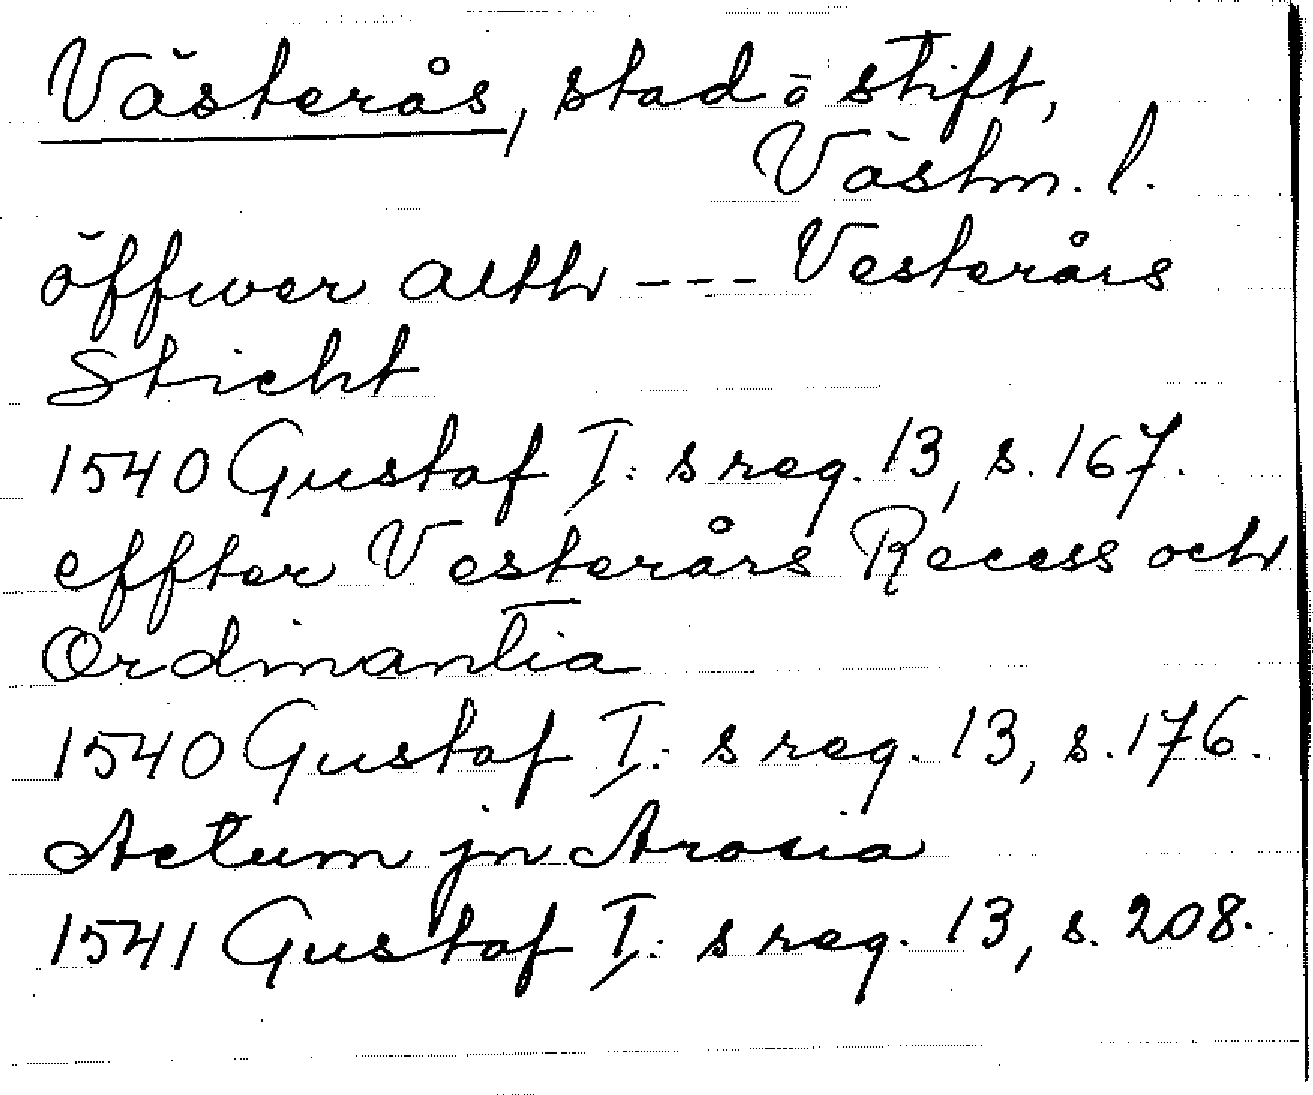 Västerås, stad o stift,
Västm. l.
öffwer alth --- Vesterårs
Sticht
1540 Gustaf I: s reg. 13, s. 167.
effter Vesterårs Recess och
Ordinantia
1540 Gustaf I: s reg. 13, s. 176.
Actum jn Arosia
1541 Gustaf I: s reg. 13, s. 208.